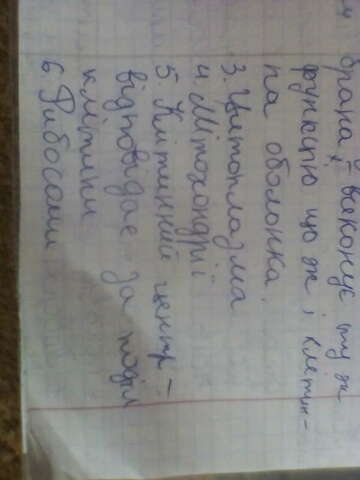 брана – виконує ту ж
функцію що ж і клітин-
на оболонка.
3. Цитоплазма
4. Мітохондрії
5. Клітинний центр –
відповідає за поділ
клітини
6. Рибосоми